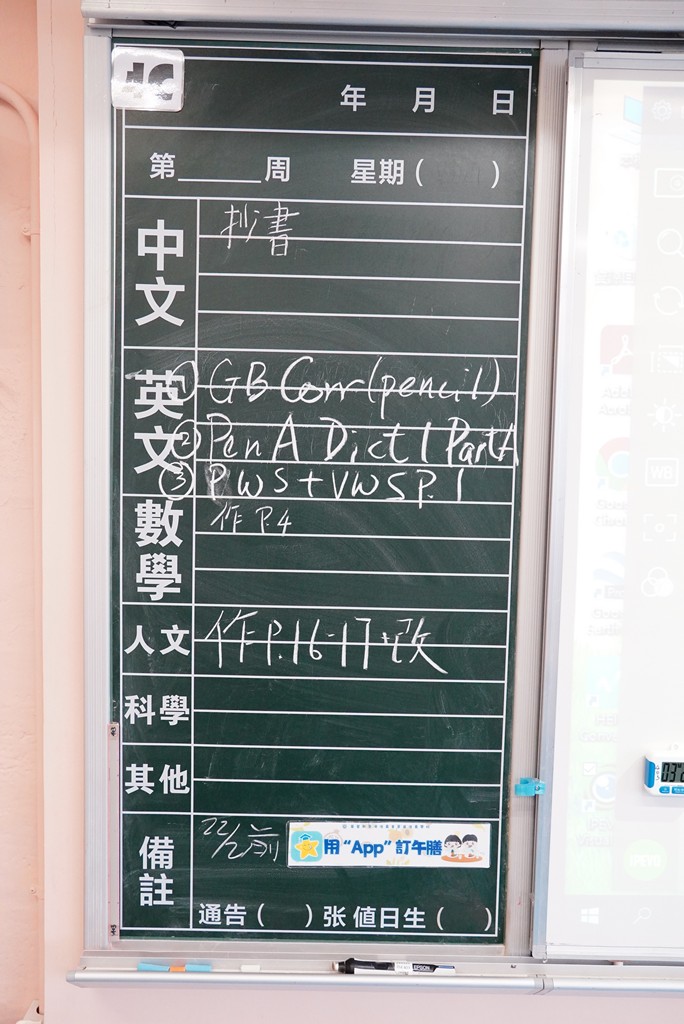 4C
年 月 日
第______周 星期( )
中文 抄書
英文 ① GB Corr (pencil)
② Pen A Dict 1 Part A
③ PWS + VWS P.1
數學 作 P.4
人文 作 P.16-17 + 改
科學
其他
備註 22/2前
用 “App” 訂午膳
通告( )张 值日生( )
WB
EPSON